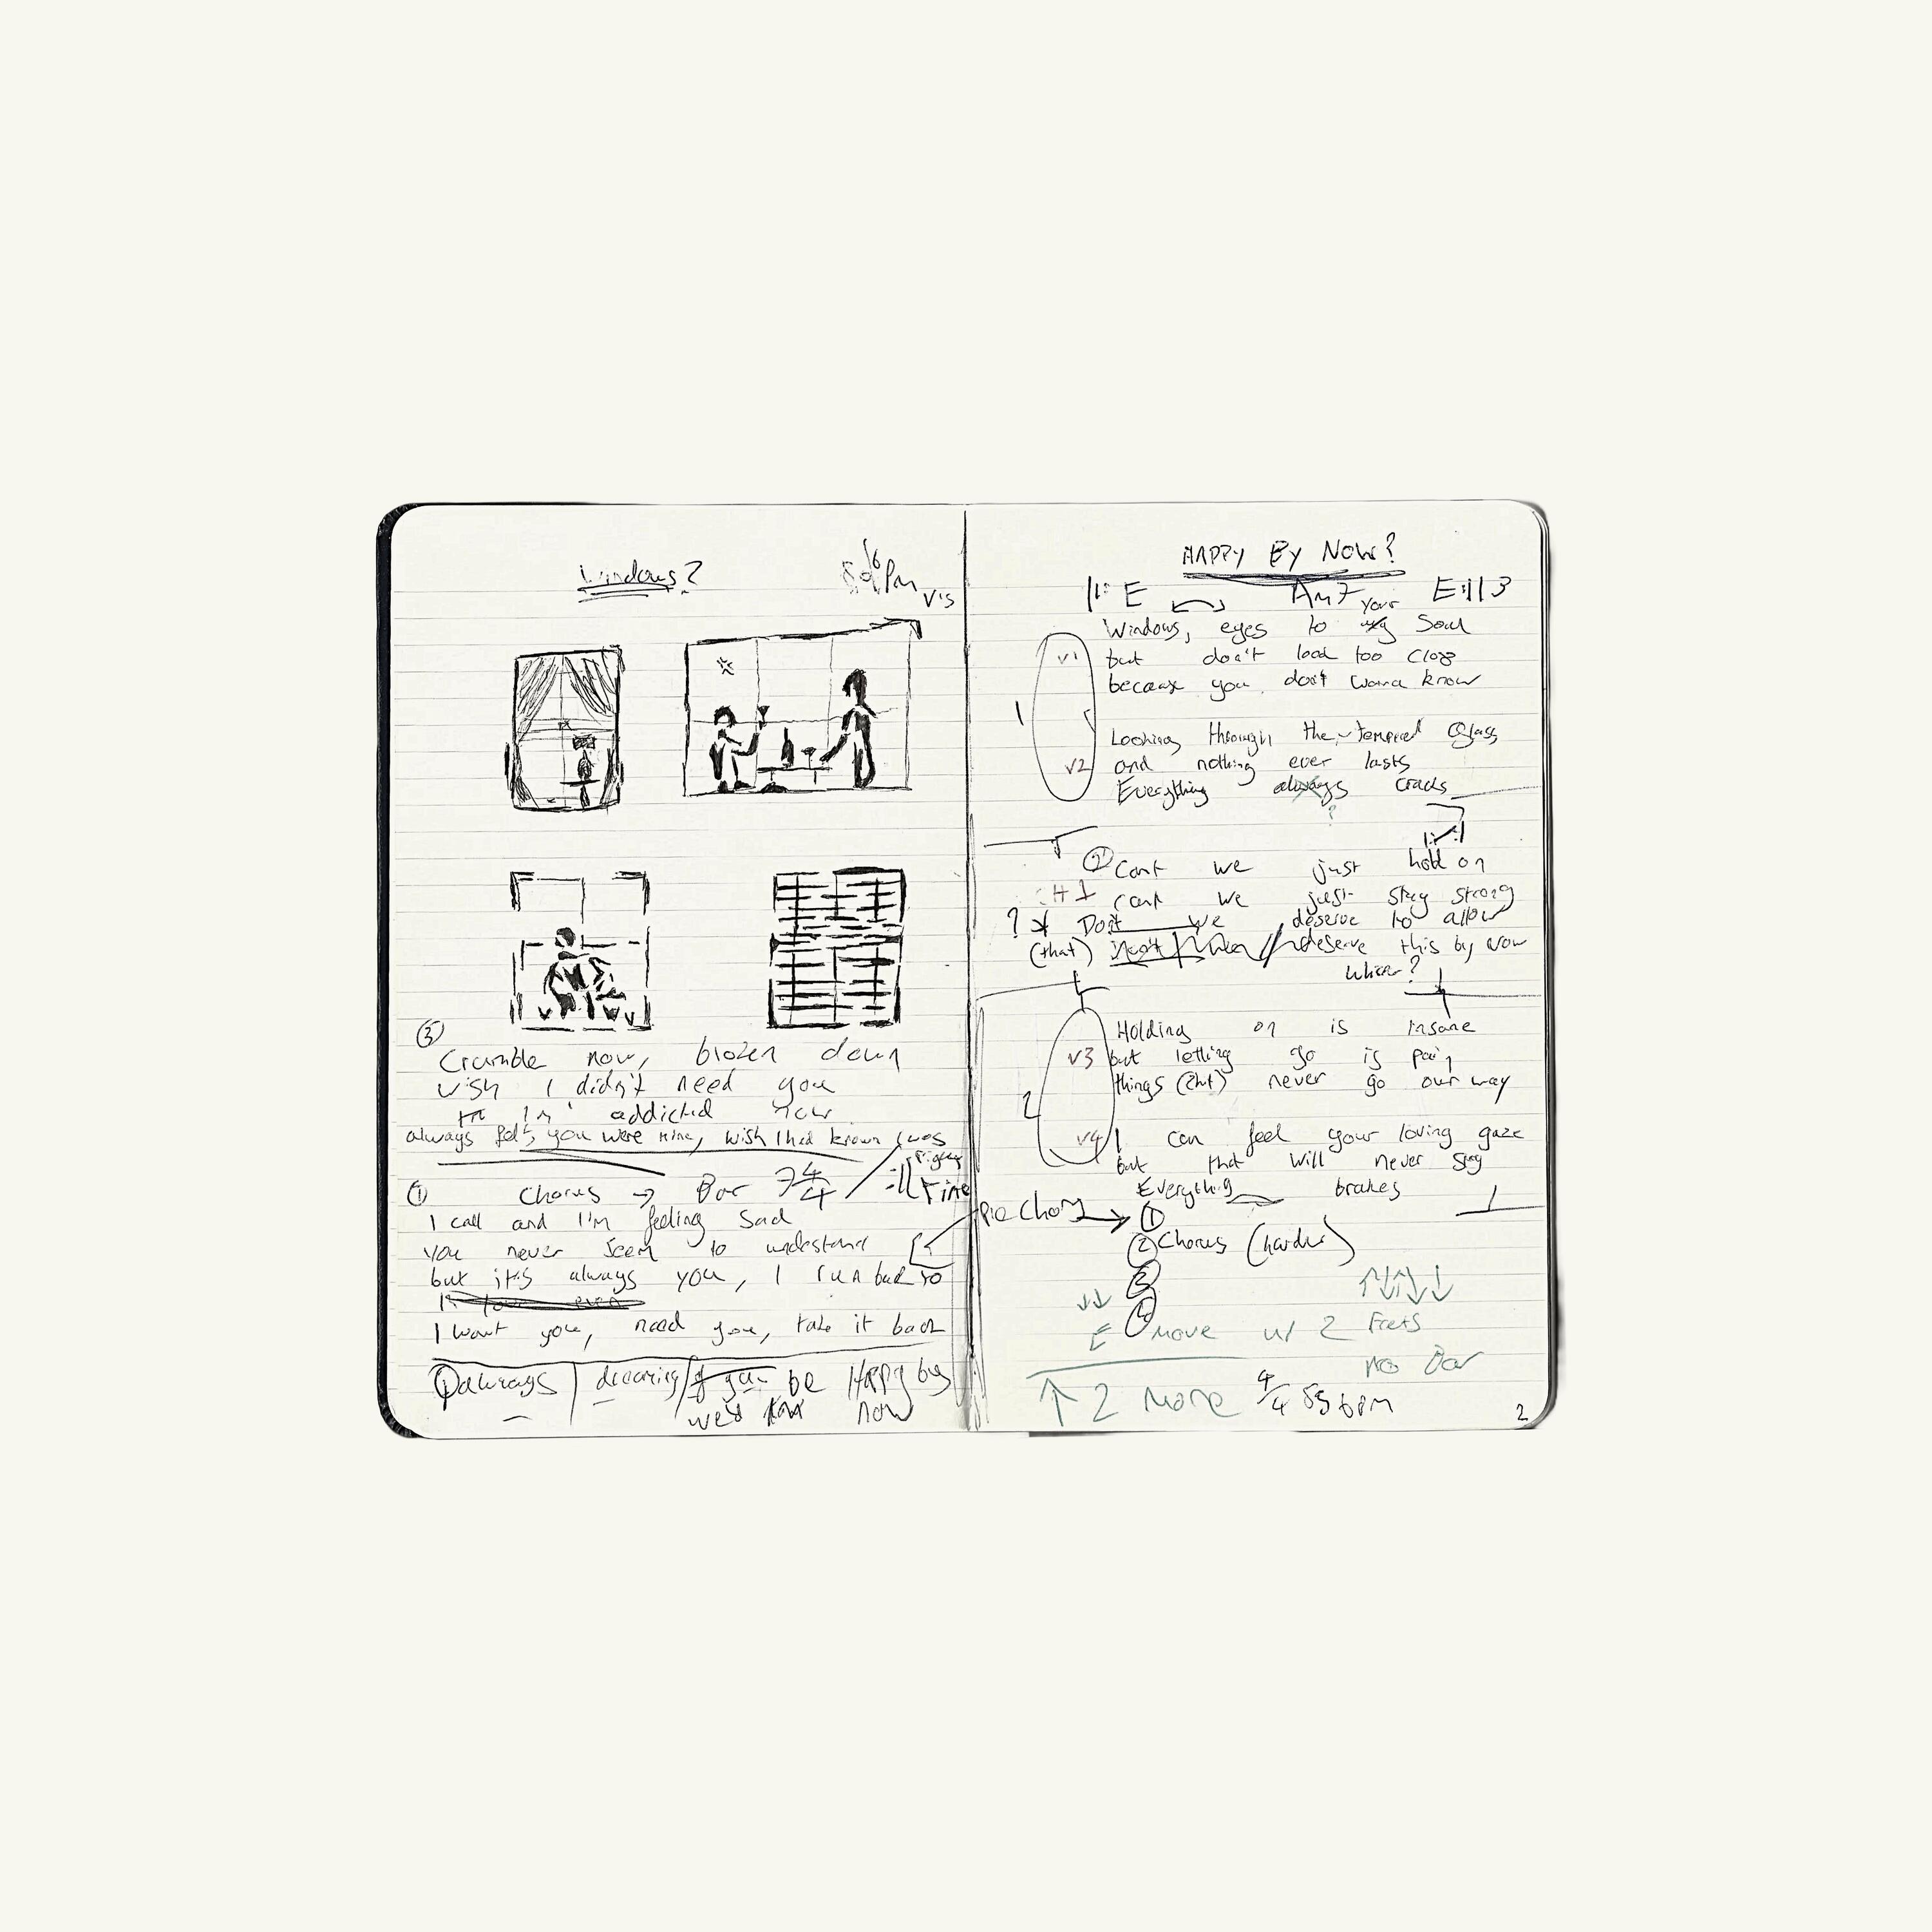 Windows?
HAPPY By Now?
E Am7 E :|| 3
Windows, eyes to your soul
v1 but don't look too close
because you don't wana know
1
Looking through the tempered Glass
v2 and nothing ever lasts
Everything always cracks
?
② Cant we just hold on
cant we just stay strong
? Don't we deserve to allow
(that) deserve this by now
when?
Holding on is insane
v3 but letting go is pain
things never go our way
2
v4 I can feel your loving gaze
but that will never stay
Everything brakes
Pre Chorus → ①
② Chorus (harder)
③
④
E move w/ 2 Frets
No Bar
↑ 2 more 4/4 85 bpm
2
③
Crumble now, broken down
wish I didn't need you
I'm addicted now
always felt you were mine, wish I had known I was
① Chorus → Bar 4/4 Fine
I call and I'm feeling sad
you never seem to understand
but it's always you, I run back to
I want you, need you, take it back
always dreaming be Happy by
now